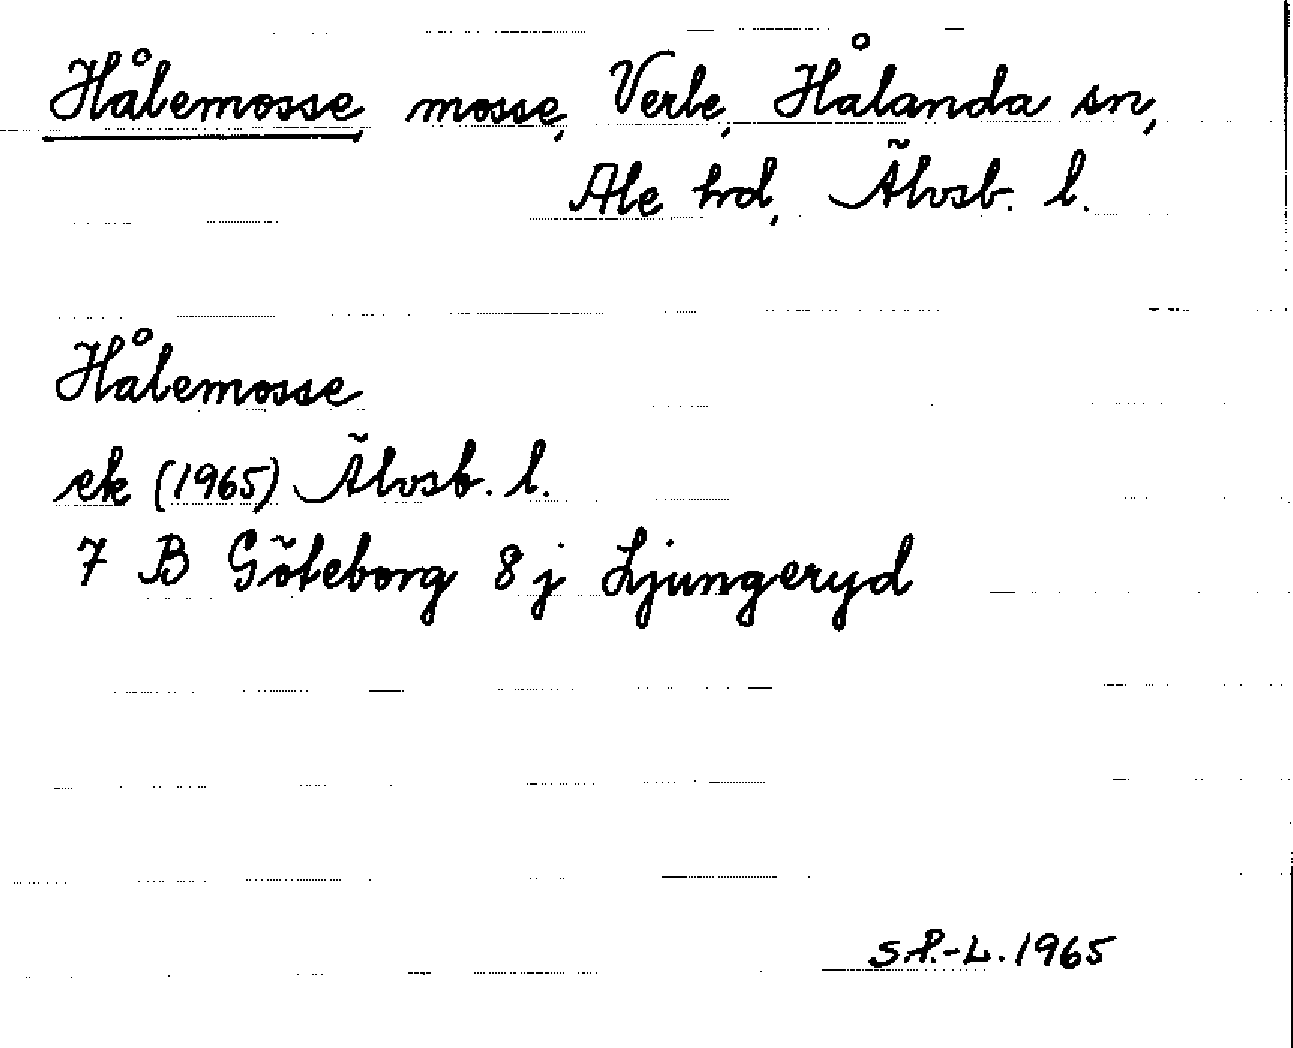 Hålemosse, mosse, Verle, Hålanda sn,
Ale hd, Älvsb. l.
Hålemosse
ek (1965) Älvsb. l.
7 B Göteborg 8 j Ljungeryd
S.P.-L. 1965